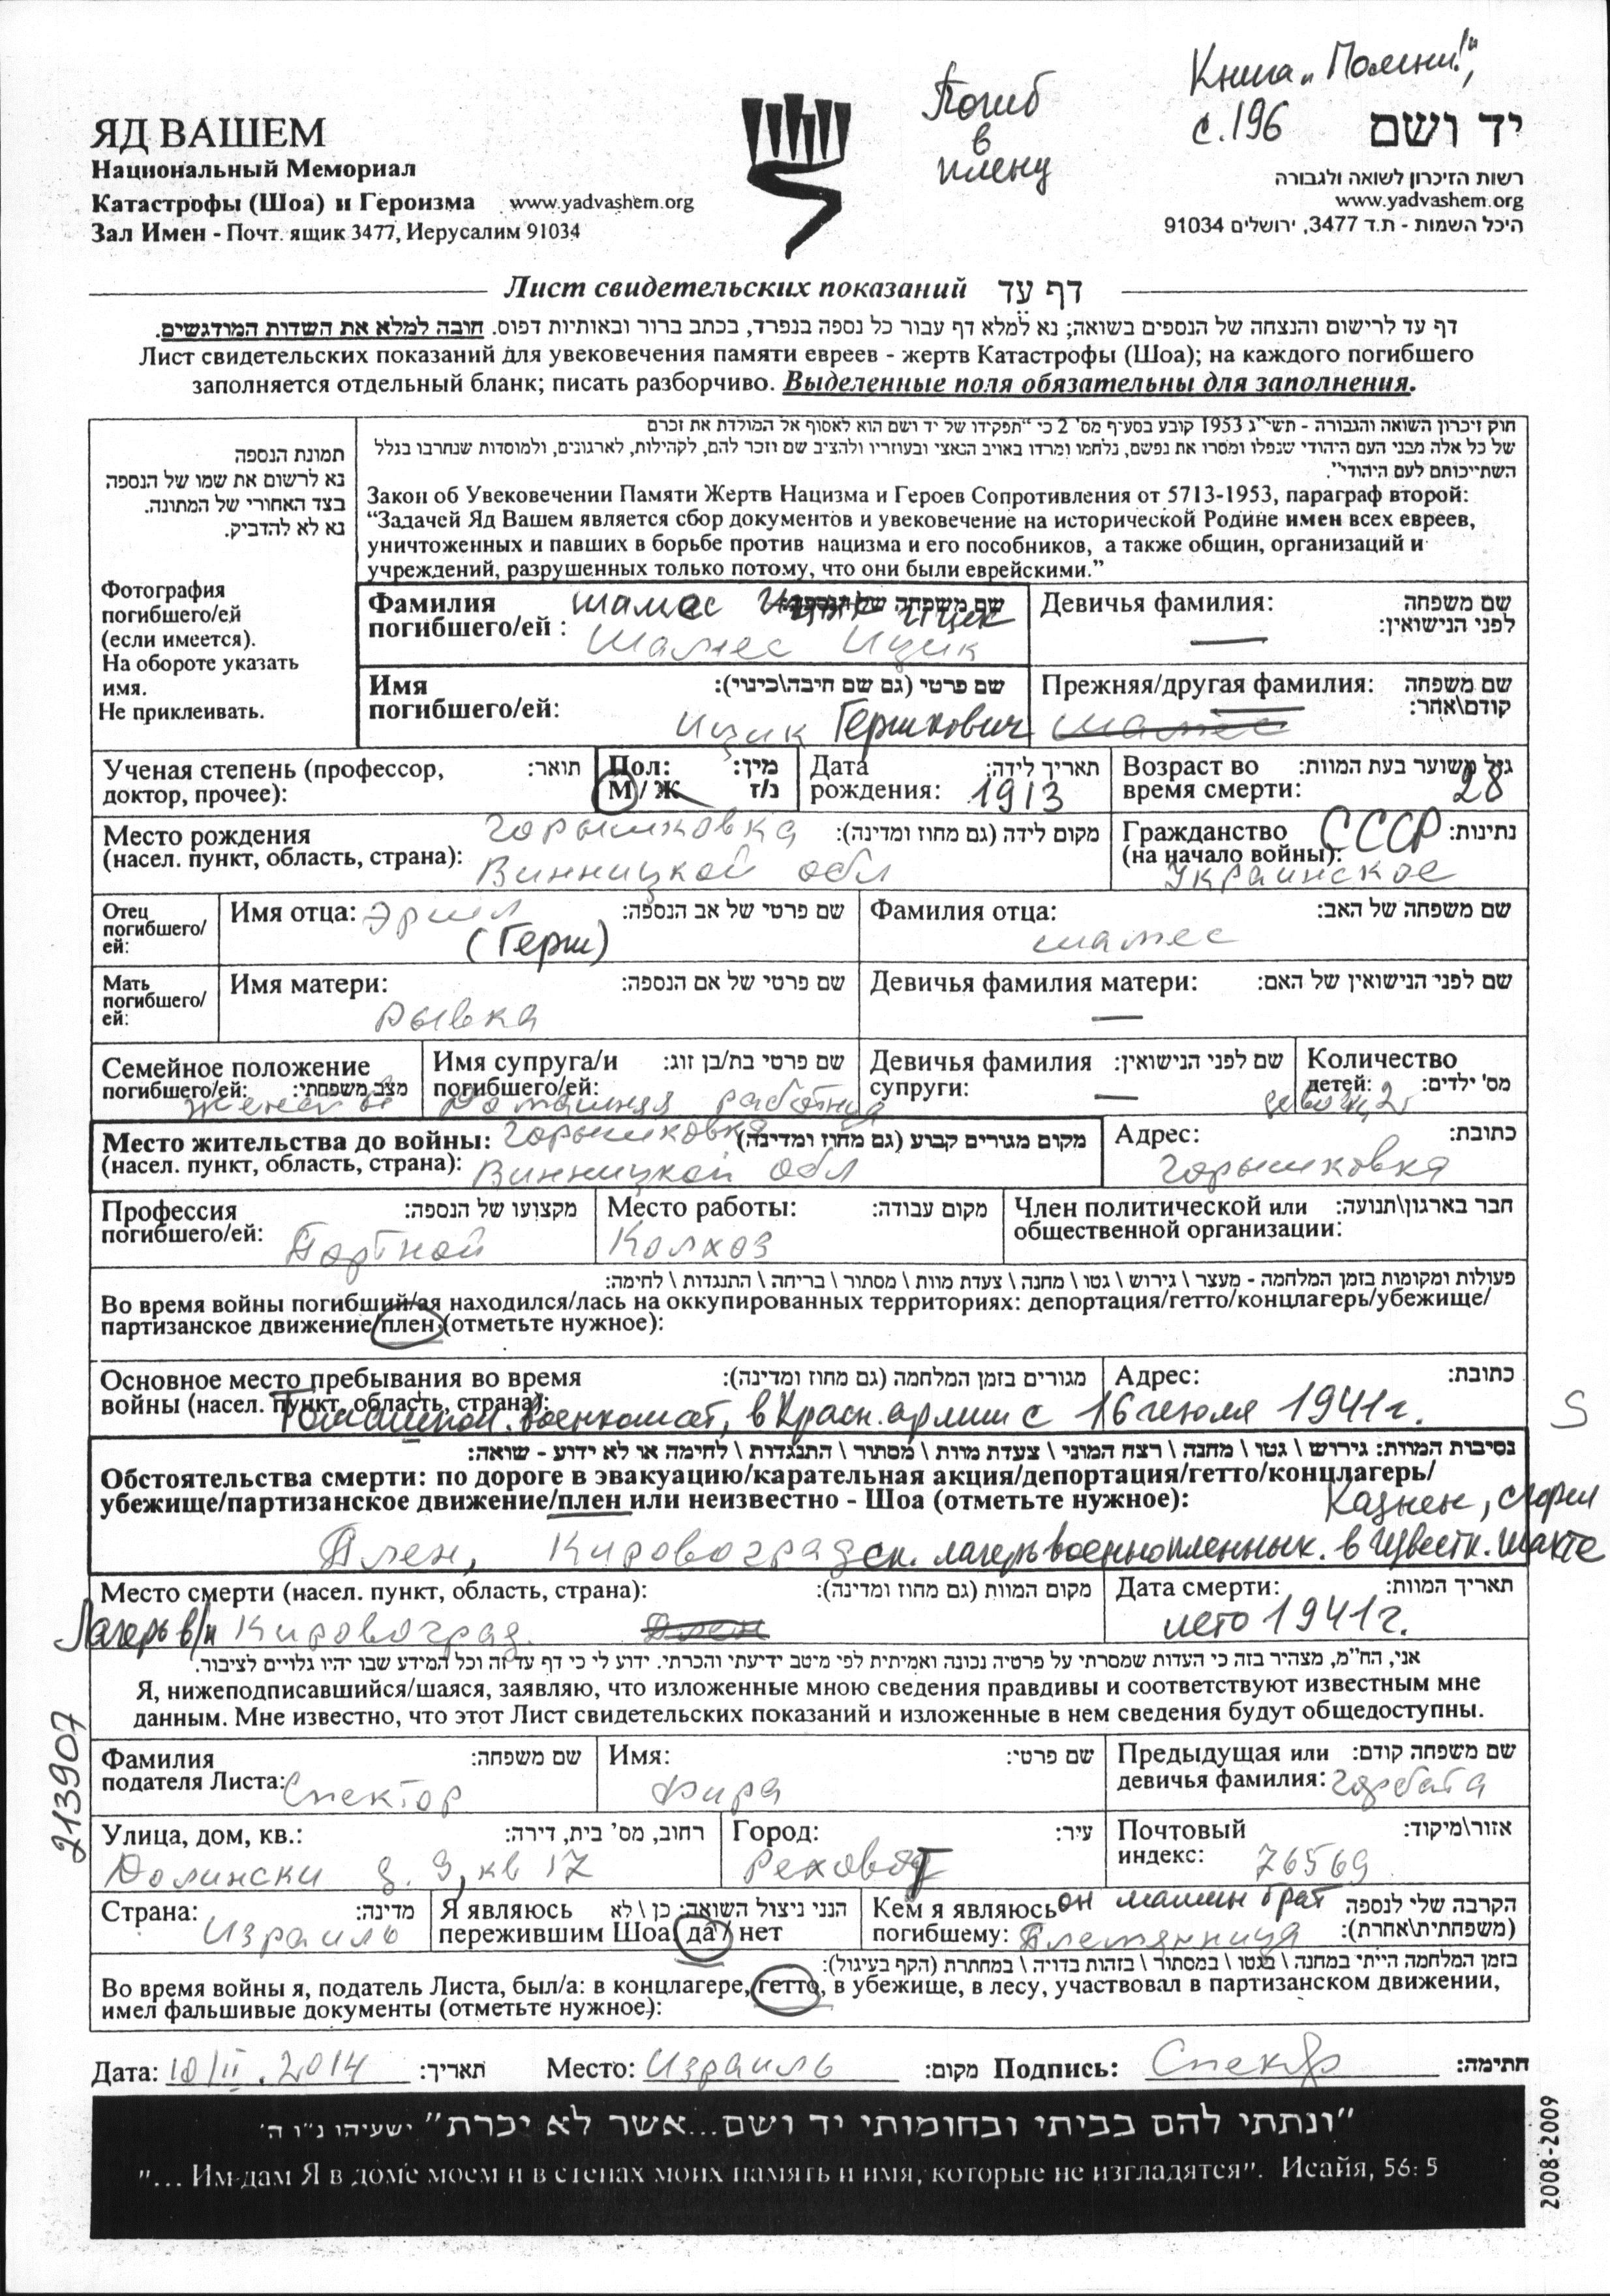 Книга "Помни!",
с. 196
Погиб
в
плену
ЯД ВАШЕМ
יד ושם
Национальный Мемориал
Катастрофы (Шоа) и Героизма www.yadvashem.org
Зал Имен - Почт. ящик 3477, Иерусалим 91034
רשות הזיכרון לשואה ולגבורה
www.yadvashem.org
היכל השמות - ת.ד 3477, ירושלים 91034
Лист свидетельских показаний דף עד
דף עד לרישום והנצחה של הנספים בשואה; נא למלא דף עבור כל נספה בנפרד, בכתב ברור ובאותיות דפוס. חובה למלא את השדות המודגשים.
Лист свидетельских показаний для увековечения памяти евреев - жертв Катастрофы (Шоа); на каждого погибшего
заполняется отдельный бланк; писать разборчиво. Выделенные поля обязательны для заполнения.
תמונת הנספה
נא לרשום את שמו של הנספה
בצד האחורי של התמונה.
נא לא להדביק.
Фотография
погибшего/ей
(если имеется).
На обороте указать
имя.
Не приклеивать.
חוק זיכרון השואה והגבורה - תשי"ג 1953 קובע בסעיף מס' 2 כי "תפקידו של יד ושם הוא לאסוף אל המולדת את זכרם
של כל אלה מבני העם היהודי שנפלו ומסרו את נפשם, נלחמו ומרדו באויב הנאצי ובעוזריו ולהציב שם וזכר להם, לקהילות, לארגונים, ולמוסדות שנחרבו בגלל
השתייכותם לעם היהודי".
Закон об Увековечении Памяти Жертв Нацизма и Героев Сопротивления от 5713-1953, параграф второй:
"Задачей Яд Вашем является сбор документов и увековечение на исторической Родине имен всех евреев,
уничтоженных и павших в борьбе против нацизма и его пособников, а также общин, организаций и
учреждений, разрушенных только потому, что они были еврейскими."
Фамилия погибшего/ей: שם משפחה של הנספה:
Шамес Ицек
Шамес Ицик
Девичья фамилия: שם משפחה לפני הנישואין: —
Имя погибшего/ей: שם פרטי (גם שם חיבה\כינוי):
Ицик Гершкович
Прежняя/другая фамилия: שם משפחה קודם\אחר:
Шамес
Ученая степень (профессор, доктор, прочее): תואר:
Пол: М / Ж מין: ז/נ
Дата рождения: תאריך לידה: 1913
Возраст во время смерти: גיל משוער בעת המוות: 28
Место рождения (насел. пункт, область, страна): מקום לידה (גם מחוז ומדינה):
Горышковка
Винницкой обл
Гражданство (на начало войны): נתינות: СССР
Украинское
Отец погибшего/ей:
Имя отца: שם פרטי של אב הנספה: Эршл
(Герш)
Фамилия отца: שם משפחה של האב: Шамес
Мать погибшего/ей:
Имя матери: שם פרטי של אם הנספה: Рывка
Девичья фамилия матери: שם לפני הנישואין של האם: —
Семейное положение погибшего/ей: מצב משפחתי: женат
Имя супруга/и погибшего/ей: שם פרטי בת/בן זוג: Домашняя работница
Девичья фамилия супруги: שם לפני הנישואין: —
Количество детей: מס' ילדים: 2
Место жительства до войны: (насел. пункт, область, страна): מקום מגורים קבוע (גם מחוז ומדינה):
Горышковка
Винницкой обл
Адрес: כתובת: Горышковка
Профессия погибшего/ей: מקצועו של הנספה: Портной
Место работы: מקום עבודה: Колхоз
Член политической или общественной организации: חבר בארגון\תנועה:
פעולות ומקומות בזמן המלחמה - מעצר \ גירוש \ גטו \ מחנה \ צעדת מוות \ מסתור \ בריחה \ התנגדות \ לחימה:
Во время войны погибший/ая находился/лась на оккупированных территориях: депортация/гетто/концлагерь/убежище/
партизанское движение/плен (отметьте нужное):
Основное место пребывания во время войны (насел. пункт, область, страна): מגורים בזמן המלחמה (גם מחוז ומדינה):
Адрес: כתובת:
Томашпол. военкомат, в Красн. армии с 16 июля 1941г.
S
נסיבות המוות: גירוש \ גטו \ מחנה \ רצח המוני \ צעדת מוות \ מסתור \ התנגדות \ לחימה או לא ידוע - שואה:
Обстоятельства смерти: по дороге в эвакуацию/карательная акция/депортация/гетто/концлагерь/
убежище/партизанское движение/плен или неизвестно - Шоа (отметьте нужное):
Казнен, сгорел
Плен, Кировоградск. лагерь военнопленных. в известк. шахте
Место смерти (насел. пункт, область, страна): מקום המוות (גם מחוז ומדינה):
Лагерь в/п Кировоград Плен
Дата смерти: תאריך המוות: лето 1941г.
אני, הח"מ, מצהיר בזה כי העדות שמסרתי על פרטיה נכונה ואמיתית לפי מיטב ידיעתי והכרתי. ידוע לי כי דף עד זה וכל המידע שבו יהיו גלויים לציבור.
Я, нижеподписавшийся/шаяся, заявляю, что изложенные мною сведения правдивы и соответствуют известным мне
данным. Мне известно, что этот Лист свидетельских показаний и изложенные в нем сведения будут общедоступны.
213907
Фамилия подателя Листа: שם משפחה: Спектор
Имя: שם פרטי: Фира
Предыдущая или девичья фамилия: שם משפחה קודם: Горбата
Улица, дом, кв.: רחוב, מס' בית, דירה: Долински д. 9, кв 17
Город: עיר: Реховот
Почтовый индекс: אזור\מיקוד: 76569
Страна: מדינה: Израиль
Я являюсь пережившим Шоа: да / нет הנני ניצול השואה: כן \ לא
Кем я являюсь погибшему: הקרבה שלי לנספה (משפחתית\אחרת): он мамин брат
Племянница
בזמן המלחמה הייתי במחנה \ בגטו \ במסתור \ בזהות בדויה \ במחתרת (הקף בעיגול):
Во время войны я, податель Листа, был/а: в концлагере, гетто, в убежище, в лесу, участвовал в партизанском движении,
имел фальшивые документы (отметьте нужное):
Дата: 10/II. 2014 תאריך: Место: Израиль מקום: Подпись: Спектр חתימה:
"ונתתי להם בביתי ובחומותי יד ושם...אשר לא יכרת" ישעיהו נ"ו ה'
"... Им дам Я в доме моем и в стенах моих память и имя, которые не изгладятся". Исайя, 56: 5
2008-2009